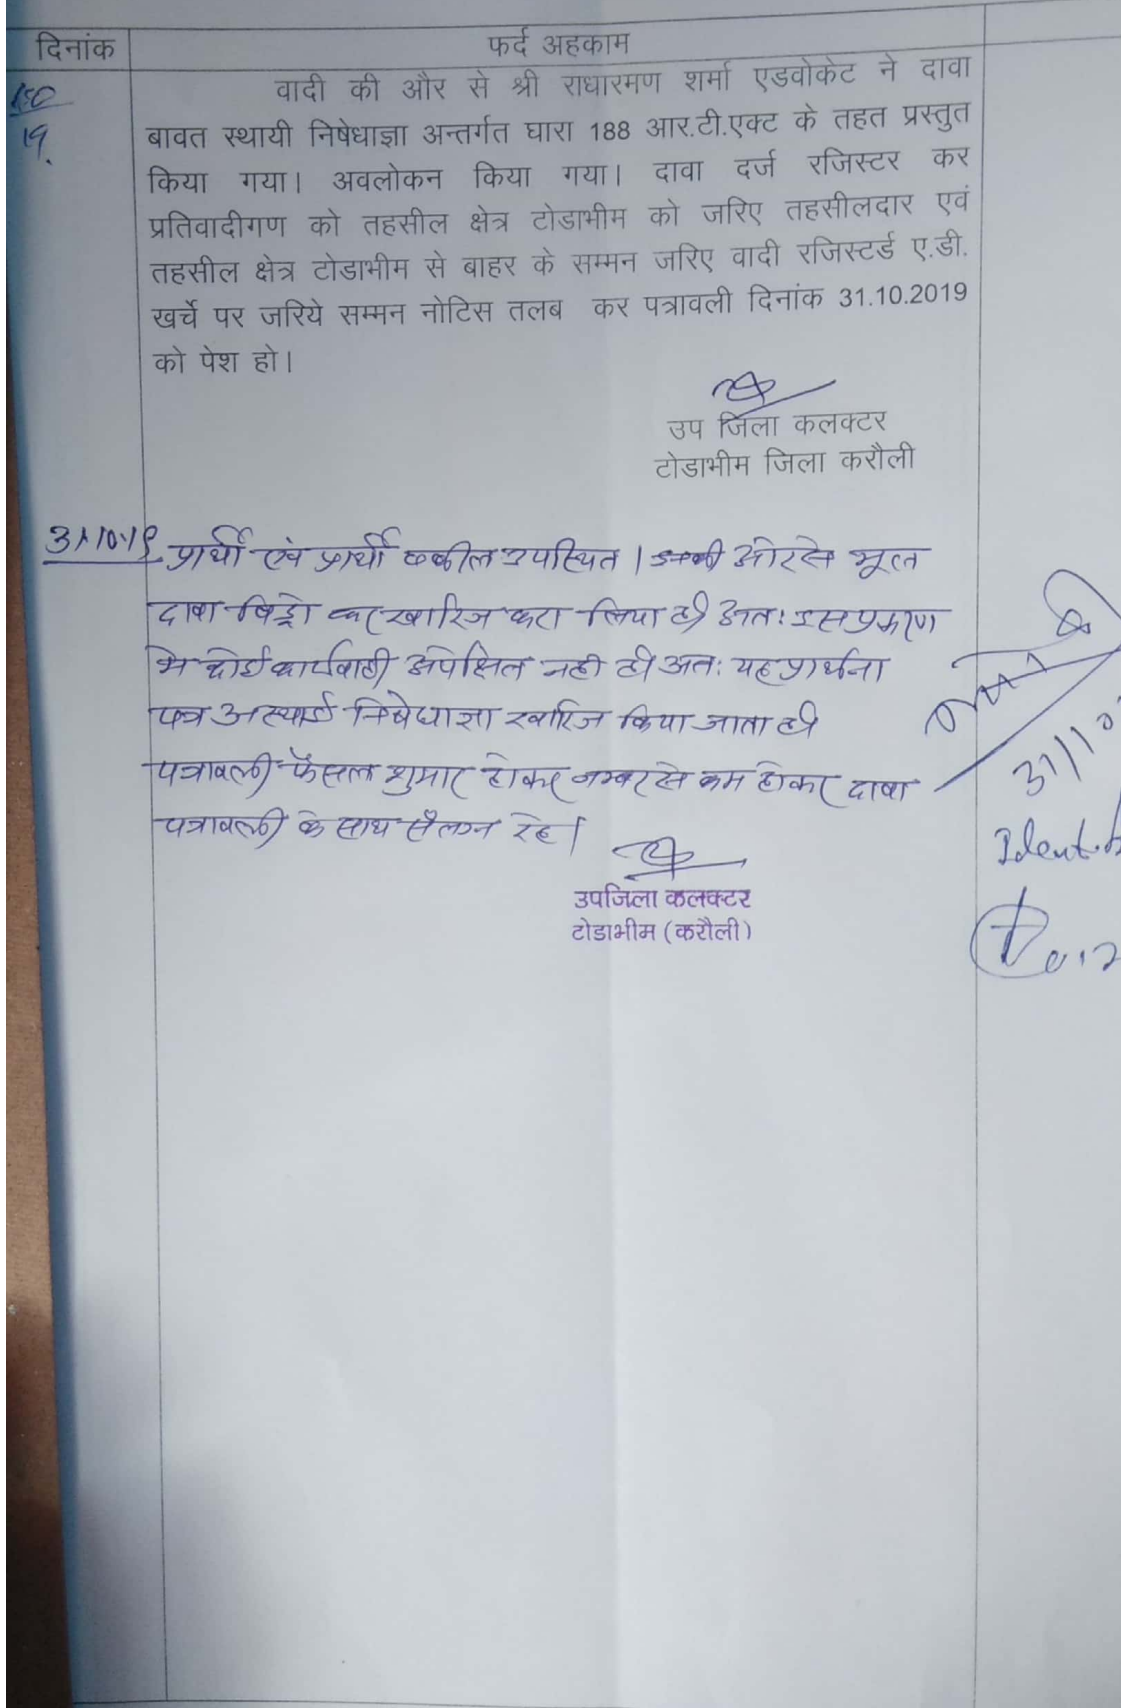 दिनांक
फर्द अहकाम
19.
वादी की और से श्री राधारमण शर्मा एडवोकेट ने दावा
बावत स्थायी निषेधाज्ञा अन्तर्गत घारा 188 आर.टी.एक्ट के तहत प्रस्तुत
किया गया। अवलोकन किया गया। दावा दर्ज रजिस्टर कर
प्रतिवादीगण को तहसील क्षेत्र टोडाभीम को जरिए तहसीलदार एवं
तहसील क्षेत्र टोडाभीम से बाहर के सम्मन जरिए वादी रजिस्टर्ड ए.डी.
खर्चे पर जरिये सम्मन नोटिस तलब कर पत्रावली दिनांक 31.10.2019
को पेश हो।
उप जिला कलक्टर
टोडाभीम जिला करौली
31.10.19 प्रार्थी एवं प्रार्थी वकील उपस्थित। इनकी ओर से मूल
दावा विड्रो कर खारिज करा लिया है। अतः इस प्रकरण
मे कोई कार्यवाही अपेक्षित नही है। अतः यह प्रार्थना
पत्र अस्थाई निषेधाज्ञा खारिज किया जाता है।
पत्रावली फैसल शुमार होकर नम्बर से कम होकर दावा
पत्रावली के साथ सँलग्न रहे।
उपजिला कलक्टर
टोडाभीम (करौली)
31/10